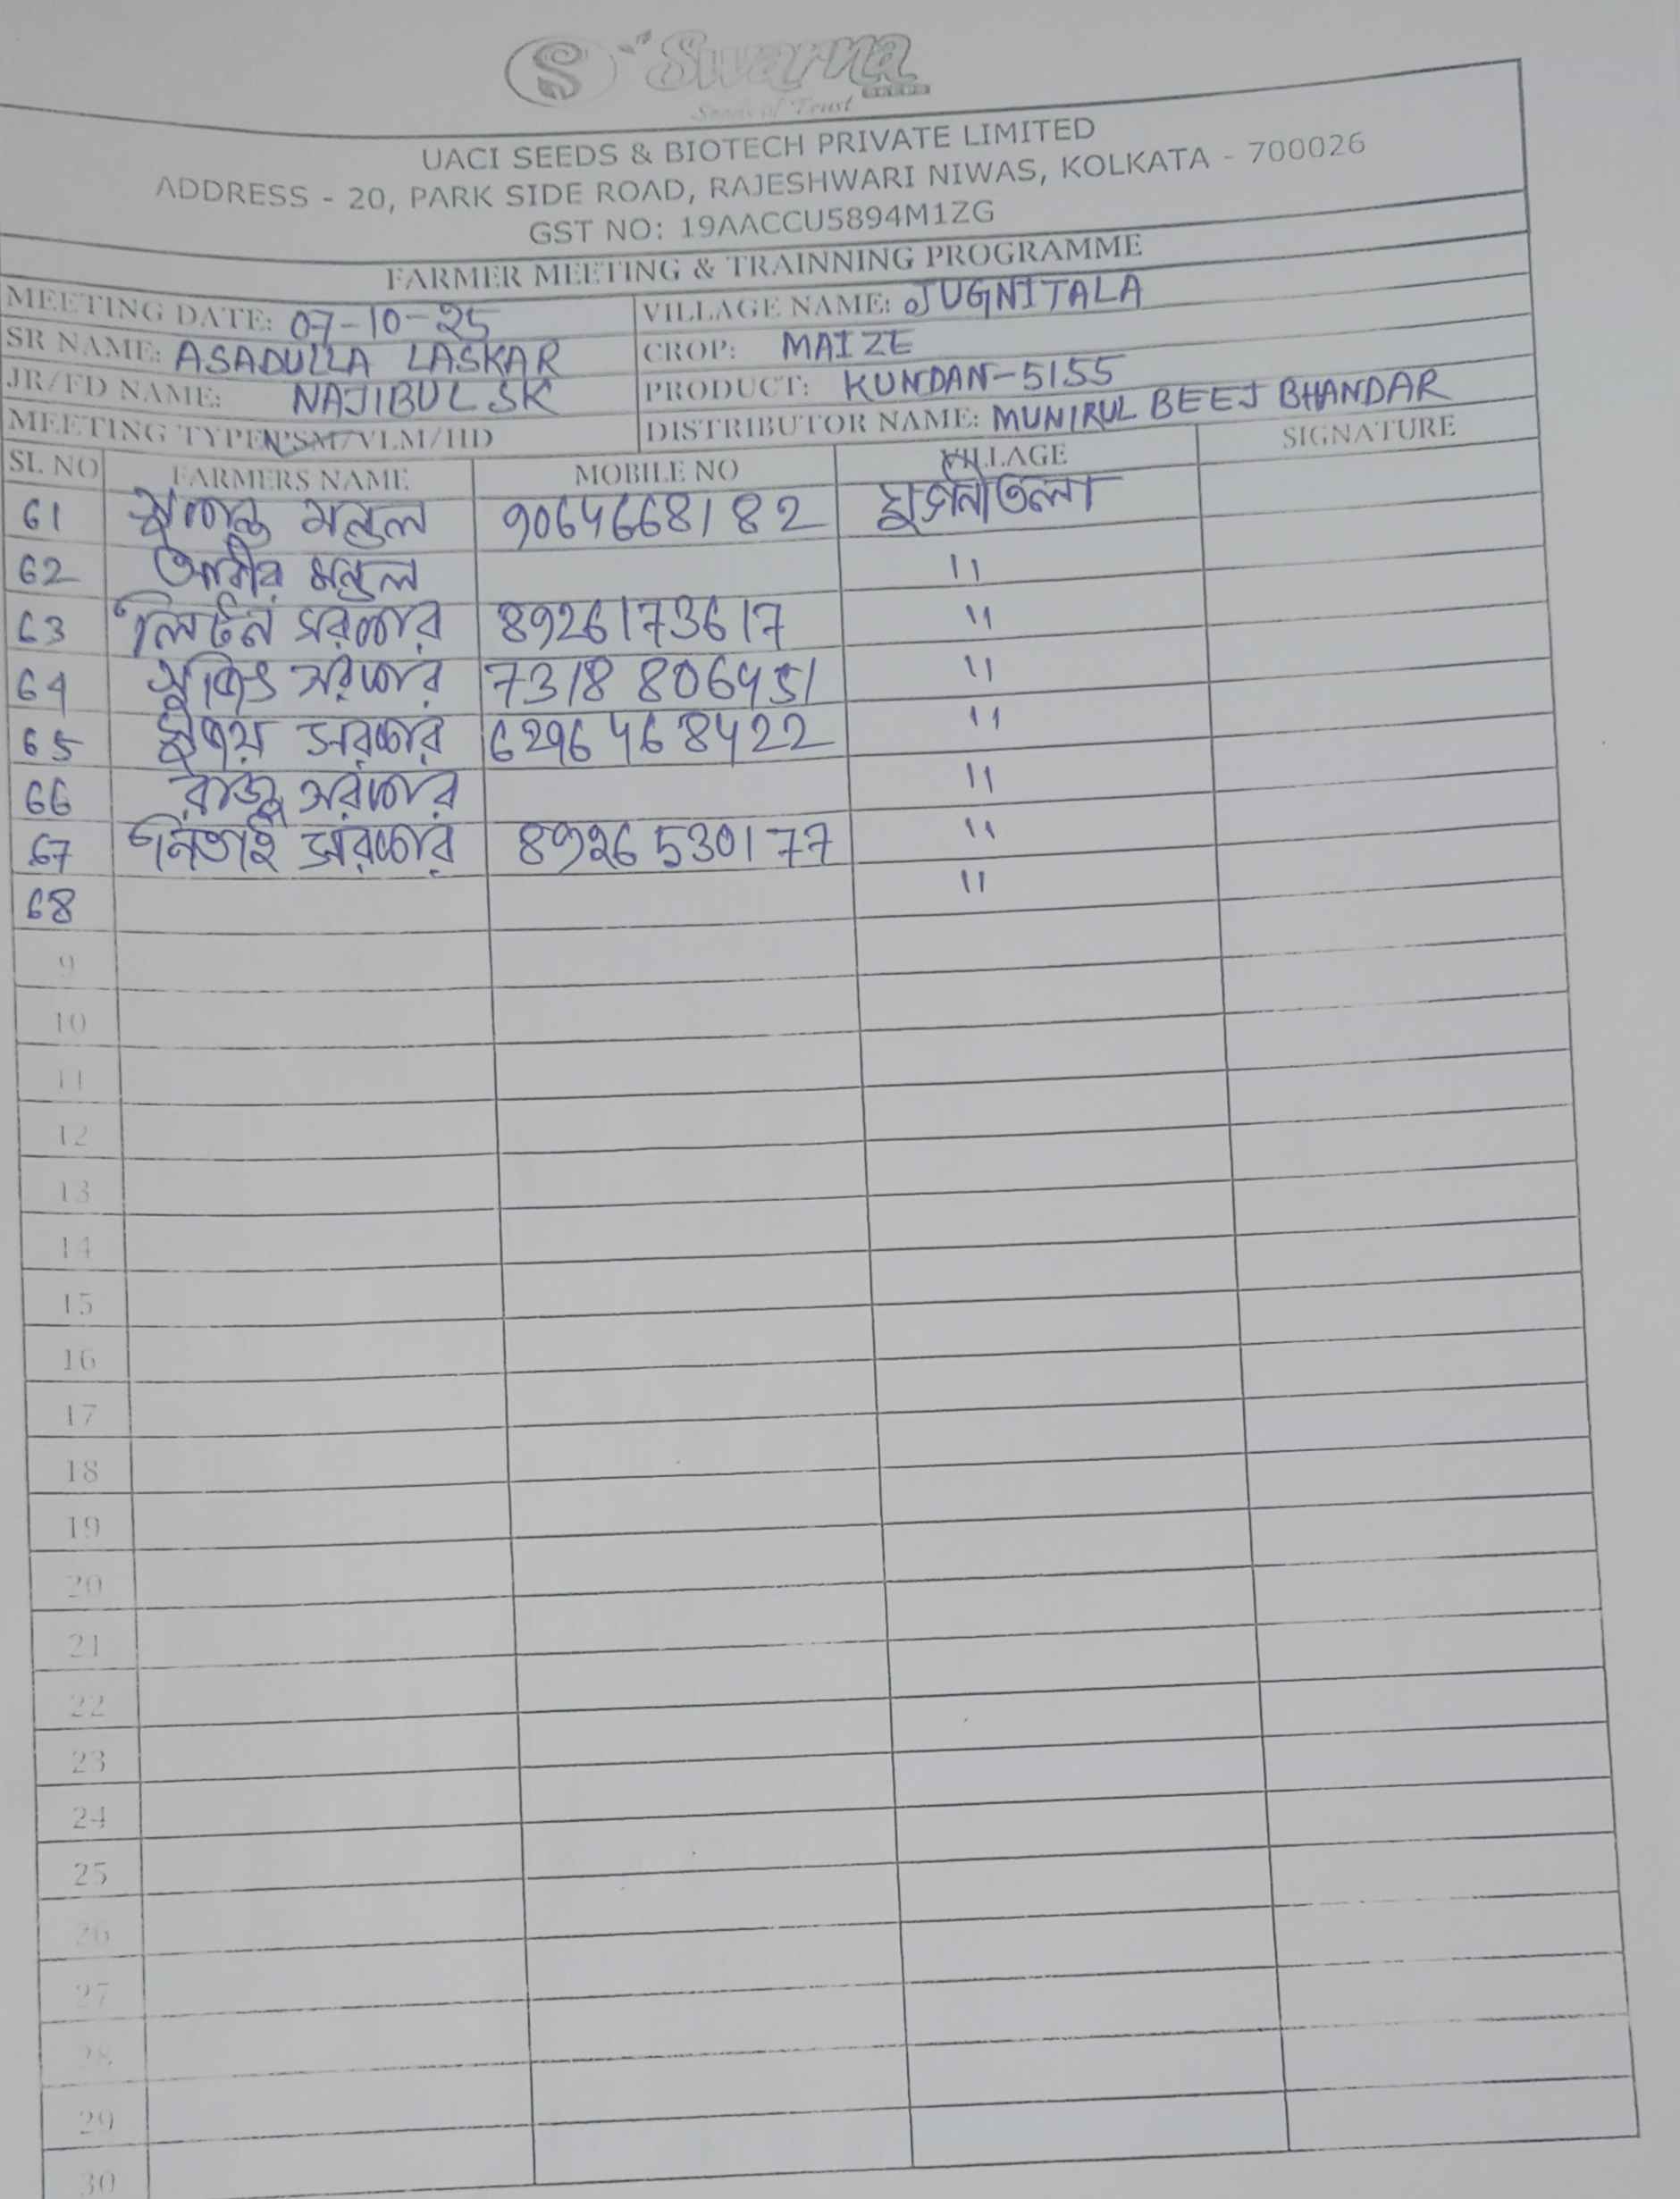 Swarna
Seeds of Trust
UACI SEEDS & BIOTECH PRIVATE LIMITED
ADDRESS - 20, PARK SIDE ROAD, RAJESHWARI NIWAS, KOLKATA - 700026
GST NO: 19AACCU5894M1ZG
FARMER MEETING & TRAINNING PROGRAMME
MEETING DATE: 07-10-25 VILLAGE NAME: JUGNITALA
SR NAME: ASADULLA LASKAR CROP: MAIZE
JR/FD NAME: NAJIBUL SK PRODUCT: KUNDAN-5155
MEETING TYPE: PSM/VLM/HD DISTRIBUTOR NAME: MUNIRUL BEEJ BHANDAR
SL NO FARMERS NAME MOBILE NO VILLAGE SIGNATURE
61 মন্ডল 9064668182
62 মন্ডল 11
63 লিটন সরকার 8926173617 11
64 সুজিৎ সরকার 7318806451 11
65 সরকার 6296468422 11
66 রাজু সরকার 11
67 নিতাই সরকার 8926530177 11
68 11
9
10
11
12
13
14
15
16
17
18
19
20
21
22
23
24
25
26
27
28
29
30